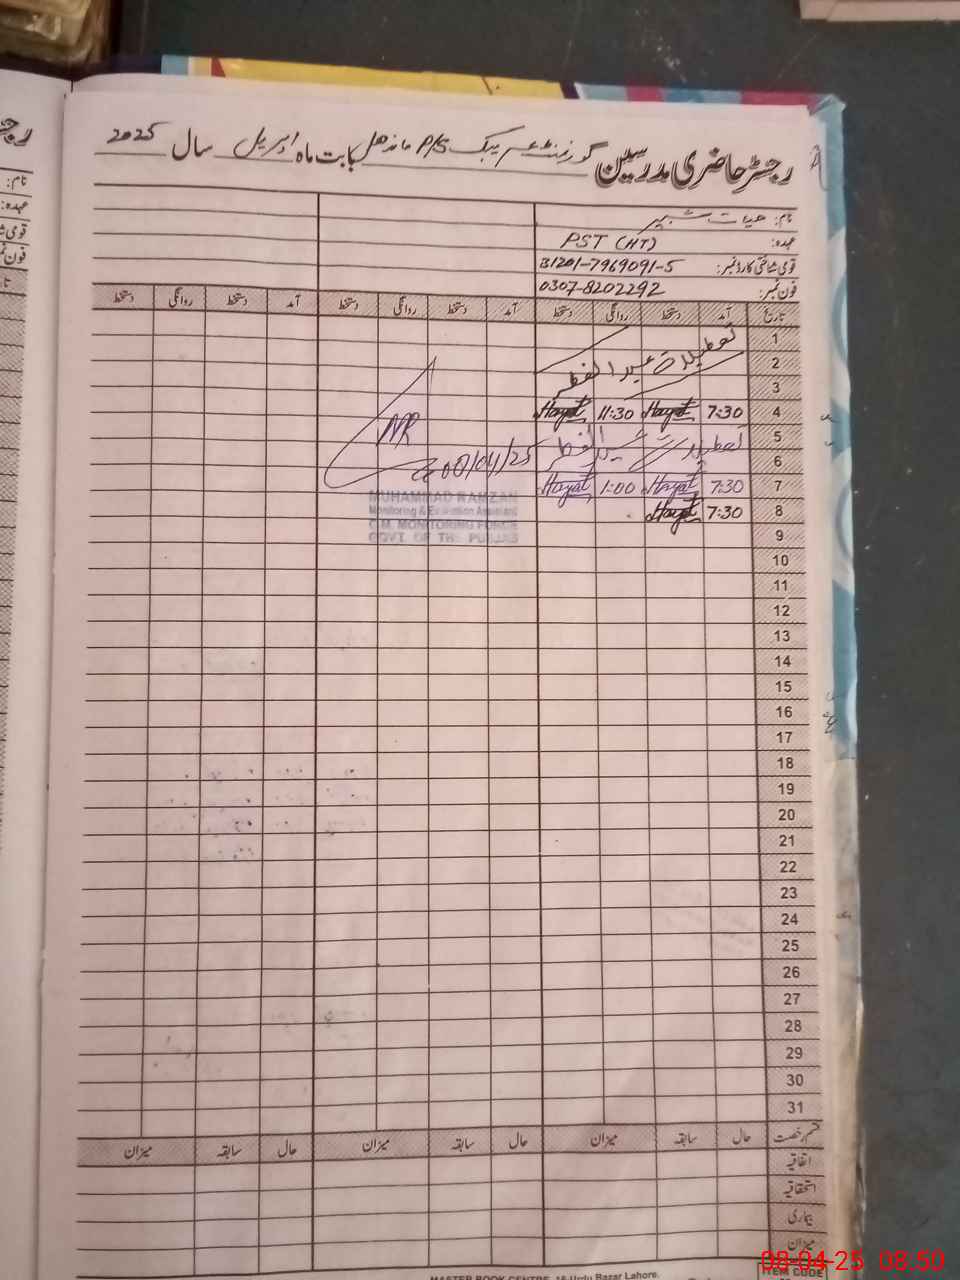 رجسٹر حاضری مدرسین گورنمنٹ P/S بابت ماہ اپریل سال 2025
نام: حیات شبیر
عہدہ: PST (HT)
قومی شناختی کارڈ نمبر: 31201-7969091-5
فون نمبر: 0307-8202292
تاریخ آمد دستخط روانگی دستخط آمد دستخط روانگی دستخط آمد دستخط روانگی دستخط
1
2 تعطیلات عید الفطر
3
4 7:30 Hayat 11:30 Hayat
5
6 تعطیلات عید الفطر
7 7:30 Hayat 1:00 Hayat
8 7:30 Hayat
MR
08/04/25
MUHAMMAD RAMZAN
Monitoring & Evaluation Assistant
C.M. MONITORING FORCE
GOVT. OF THE PUNJAB
9
10
11
12
13
14
15
16
17
18
19
20
21
22
23
24
25
26
27
28
29
30
31
قسم رخصت حال سابقہ میزان حال سابقہ میزان حال سابقہ میزان
اتفاقیہ
استحقاقیہ
بیماری
میزان
MASTER BOOK CENTRE, 16-Urdu Bazar Lahore.
ITEM CODE
08-04-25 08:50